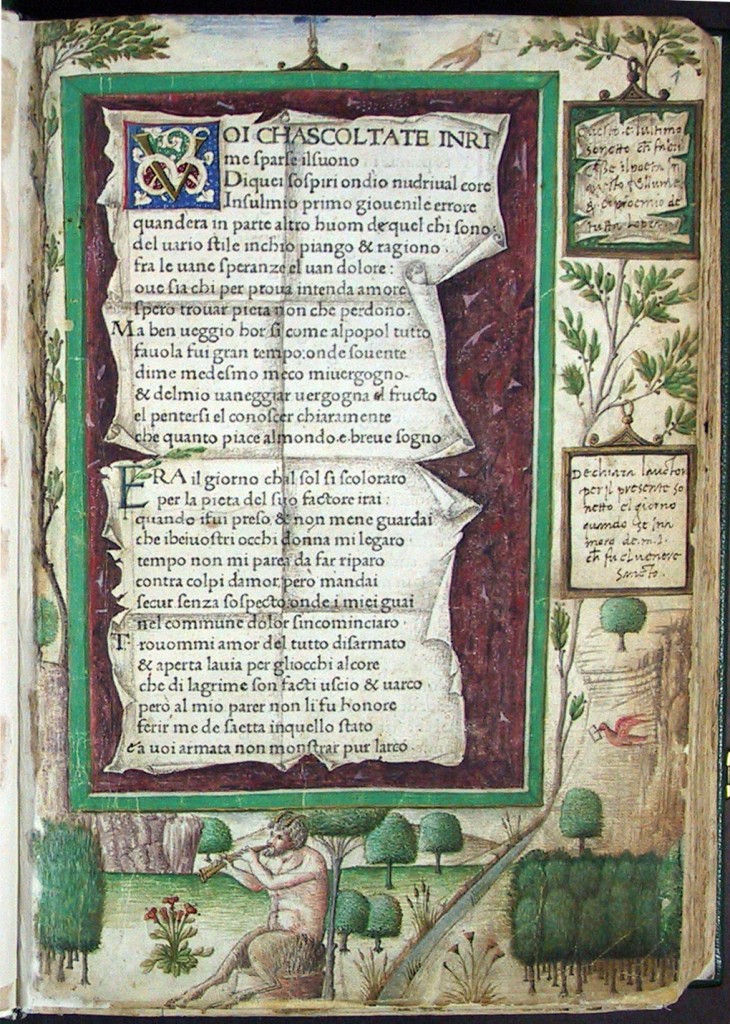 VOI CHASCOLTATE INRI
me sparse ilsuono
Diquei sospiri ondio nudriual core
Insulmio primo giouenile errore
quandera in parte altro huom dequel chi sono
del uario stile inchio piango & ragiono
fra le uane speranze el uan dolore :
oue sia chi per proua intenda amore
spero trouar pieta non che perdono.
Ma ben ueggio hor si come alpopol tutto
fauola fui gran tempo:onde souente
dime medesmo meco miuergogno.
& delmio uaneggiar uergogna el fructo
el pentersi el conoscer chiaramente
che quanto piace almondo.e.breue sogno
ERA il giorno chal sol si scoloraro
per la pieta del suo factore irai :
quando ifui preso & non mene guardai
che ibeiuostri occhi donna mi legaro
tempo non mi parea da far riparo
contra colpi damor.pero mandai
secur senza sospecto:onde i miei guai
nel commune dolor sincominciaro
Trouommi amor del tutto disarmato
& aperta lauia per gliocchi alcore
che di lagrime son facti uscio & uarco
pero al mio parer non li fu honore
ferir me de saetta inquello stato
& a uoi armata non monstrar pur larco.
1
Questo e lultimo
sonetto
poeta
questo uolume
& proemio de
tutta
Dechiara lauctor
per il presente so
netto el giorno
quando se inna
moro de.m.l.
ch fu el uenere
sancto.